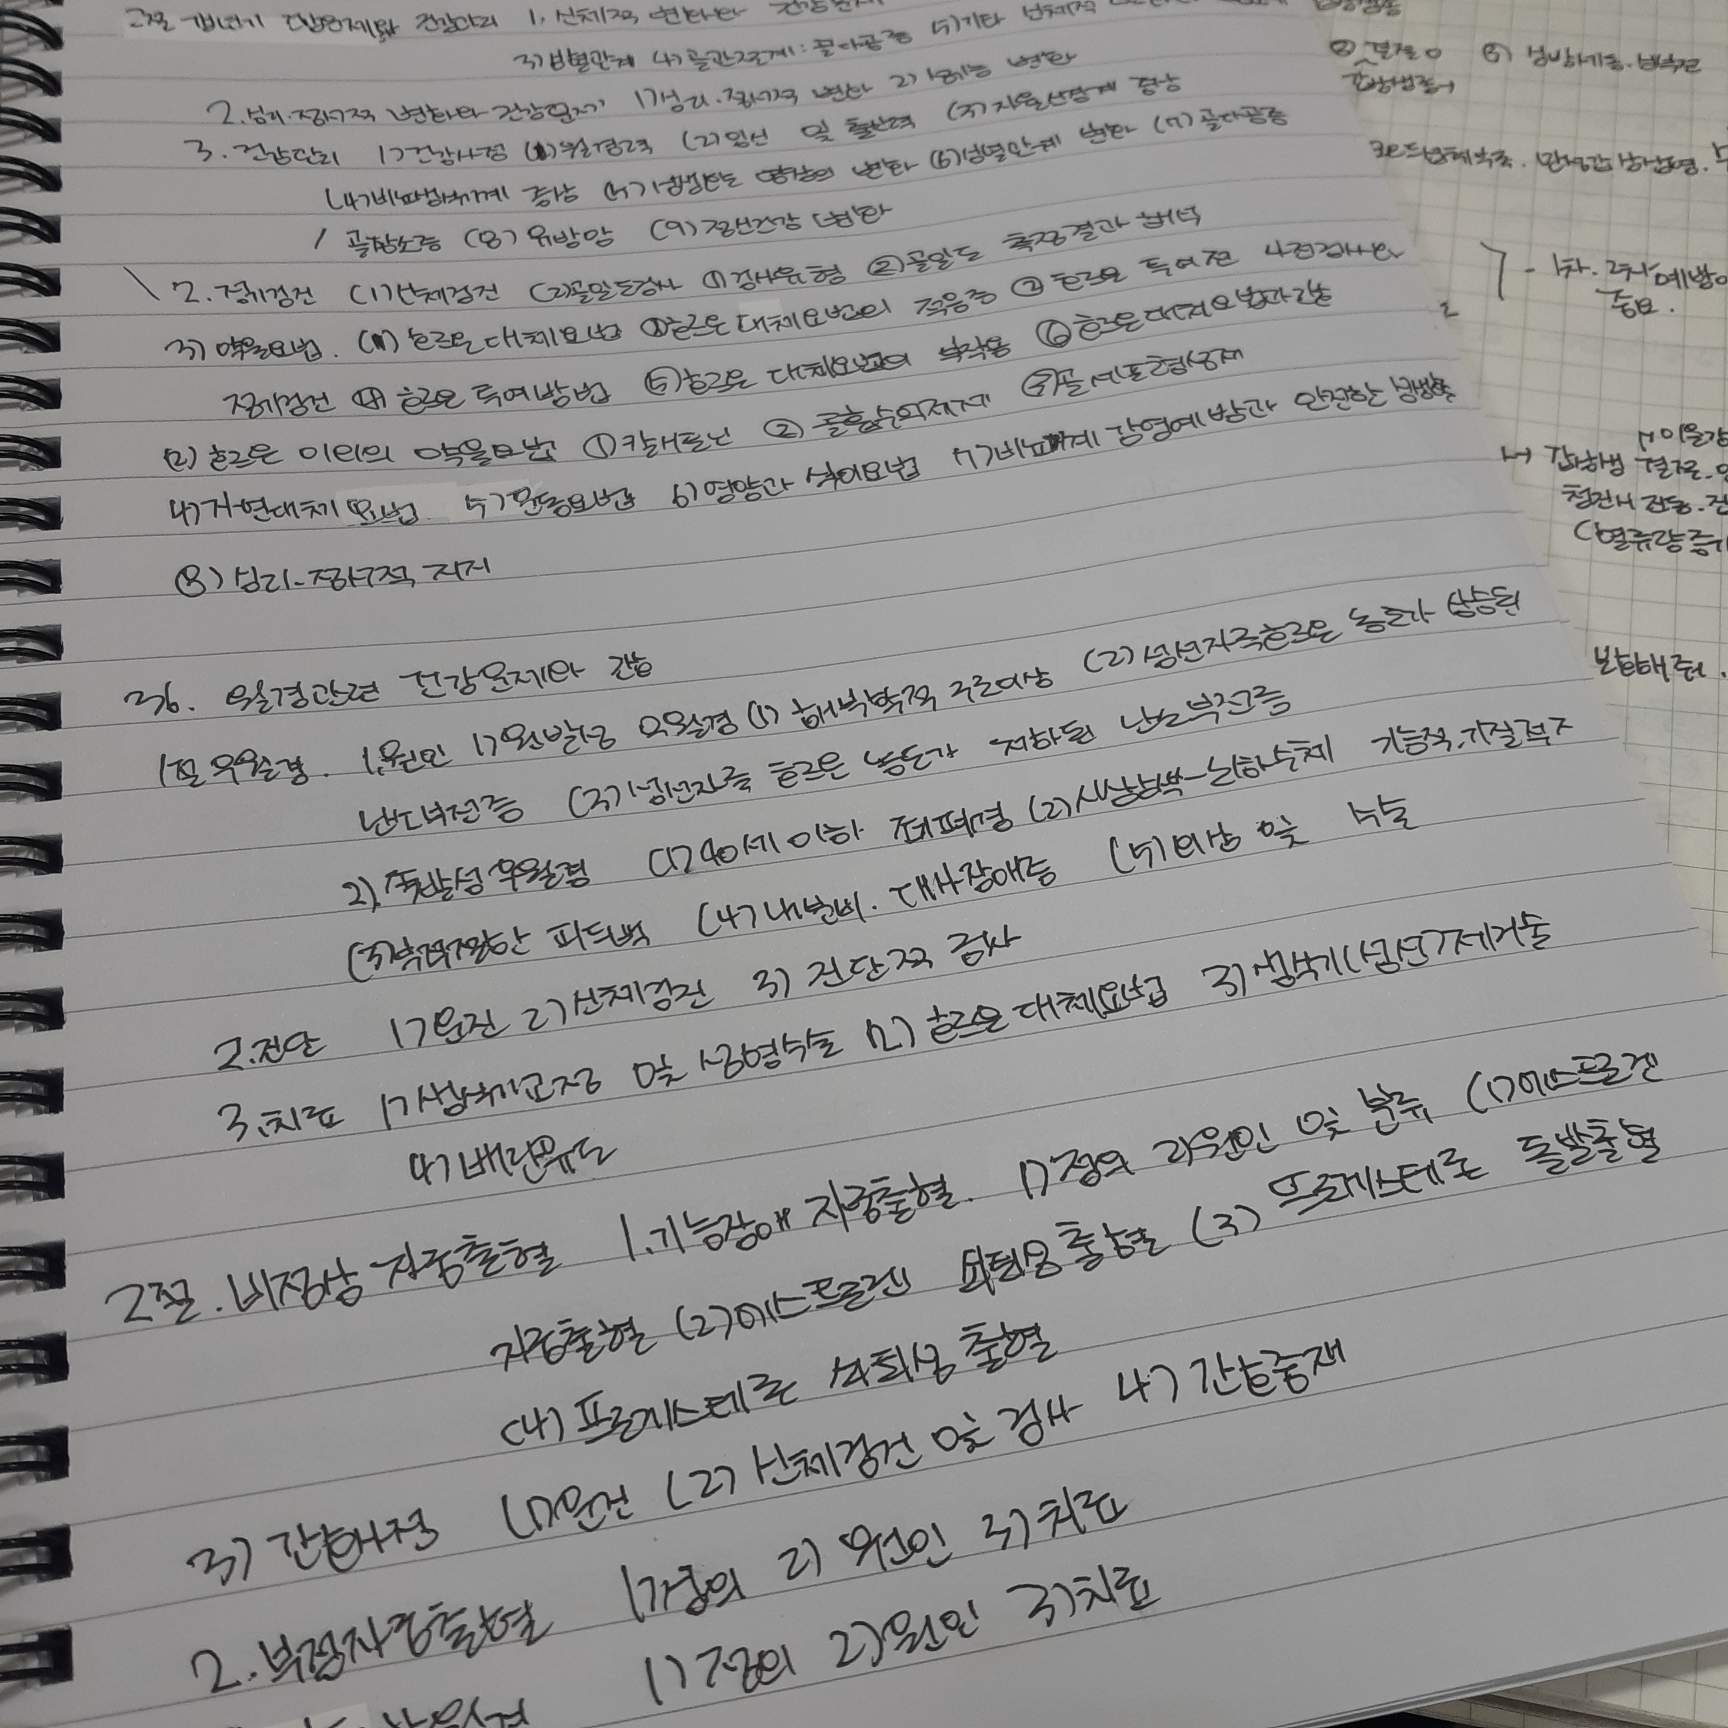 2절 갱년기 건강문제와 건강관리 1. 신체적 변화와
3) 심혈관계 4) 골관절계: 골다공증 5) 기타 신체적
2. 심리.정서적 변화와 건강문제 1) 심리.정서적 변화 2) 성기능 변화
3. 건강관리 1) 건강사정 (1) 월경력 (2) 임신 및 출산력 (3) 자율신경계 증상
(4) 비뇨생식기계 증상 (5) 성생활 양상의 변화 (6) 심혈관계 변화 (7) 골다공증
/ 골감소증 (8) 유방암 (9) 정신건강 변화
2. 정기검진 (1) 신체검진 (2) 골밀도검사 ① 검사유형 ② 골밀도 측정결과 해석
3) 약물요법. (1) 호르몬 대체요법 ① 호르몬 대체요법의 적응증 ② 호르몬 투여전 사전검사와
정기검진 ④ 호르몬 투여방법 ⑤ 호르몬 대체요법의 부작용 ⑥ 호르몬대체요법과 간호
(2) 호르몬 이외의 약물요법 ① 칼시토닌 ② 골흡수억제제 ③ 골세포형성제
4) 자연대체요법 5) 운동요법 6) 영양과 식이요법 7) 비뇨기계 감염예방과 안전한 성생활
(8) 심리-정서적 지지
36. 월경관련 건강문제와 간호
1절 무월경. 1. 원인 1) 원발성 무월경 (1) 해부학적 구조이상 (2) 성선자극호르몬 농도가 상승된
난소부전증 (3) 성선자극 호르몬 농도가 저하된 난소부전증
2) 속발성 무월경 (1) 40세 이하 조기폐경 (2) 시상하부-뇌하수체 기능적.기질적
(3) 부적절한 피드백 (4) 내분비. 대사장애증 (5) 외상 및 수술
2. 진단 1) 문진 2) 신체검진 3) 진단적 검사
3. 치료 1) 생식기교정 및 성형수술 (2) 호르몬대체요법 3) 생식기(성선)제거술
4) 배란유도
2절. 비정상 자궁출혈 1. 기능장애 자궁출혈. 1) 정의 2) 원인 및 분류 (1) 에스트로겐
자궁출혈 (2) 에스트로겐 쇠퇴성 출혈 (3) 프로게스테론 돌발출혈
(4) 프로게스테론 쇠퇴성 출혈
3) 간호사정 (1) 문진 (2) 신체검진 및 검사 4) 간호중재
2. 부정자궁출혈 1) 정의 2) 원인 3) 치료
1) 정의 2) 원인 3) 치료
1차. 2차 예방이
중요.